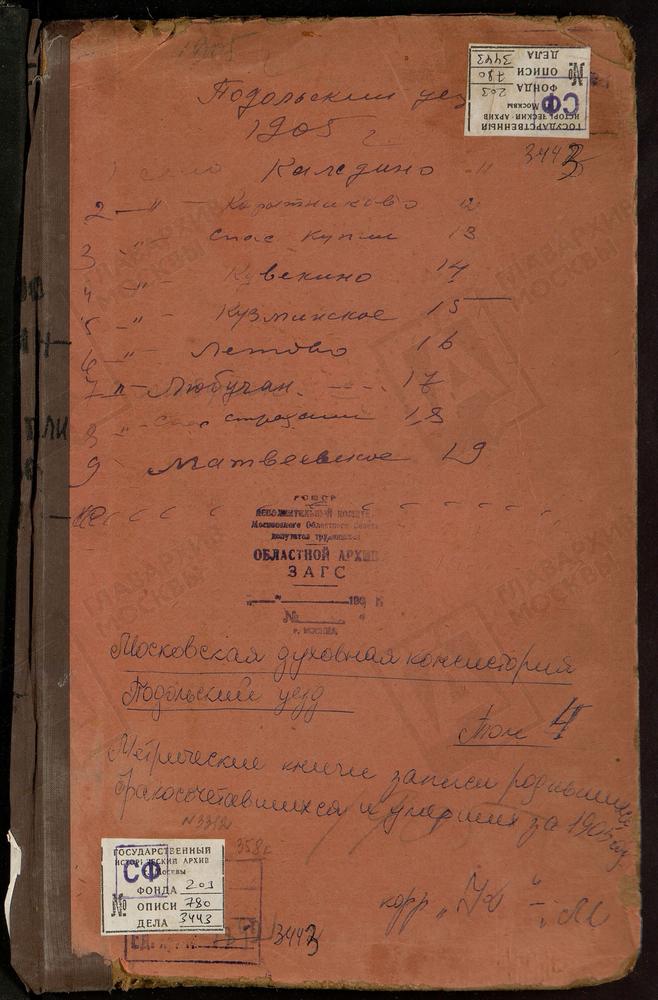 1905
ГОСУДАРСТВЕННЫЙ
ИСТОРИЧЕСКИЙ АРХИВ
Москвы
СФ
№
ФОНДА 203
ОПИСИ 780
ДЕЛА 3443
3443
Подольский уез
1905 г.
1 село Каледино 11
2 — " — 12
3 " Спас Купли 13
4 — " — Кувекино 14
5 — " — Кузминское 15
6 — " — Летово 16
7 — " — Любучан 17
8 " Спас 18
9 Матвеевское 19
РСФСР
ИСПОЛНИТЕЛЬНЫЙ КОМИТЕТ
Московского Областного Совета
депутатов трудящихся
ОБЛАСТНОЙ АРХИВ
ЗАГС
№
г. МОСКВА
Московская духовная консистория
Подольский уезд
Том 4
Метрические книги записи родившихся
бракосочетавшихся и умерших за 1905 год
N3312
358г
ГОСУДАРСТВЕННЫЙ
ИСТОРИЧЕСКИЙ АРХИВ
Москвы
СФ
№
ФОНДА 203
ОПИСИ 780
ДЕЛА 3443
3443
ГЛАВАРХИВ
МОСКВЫ